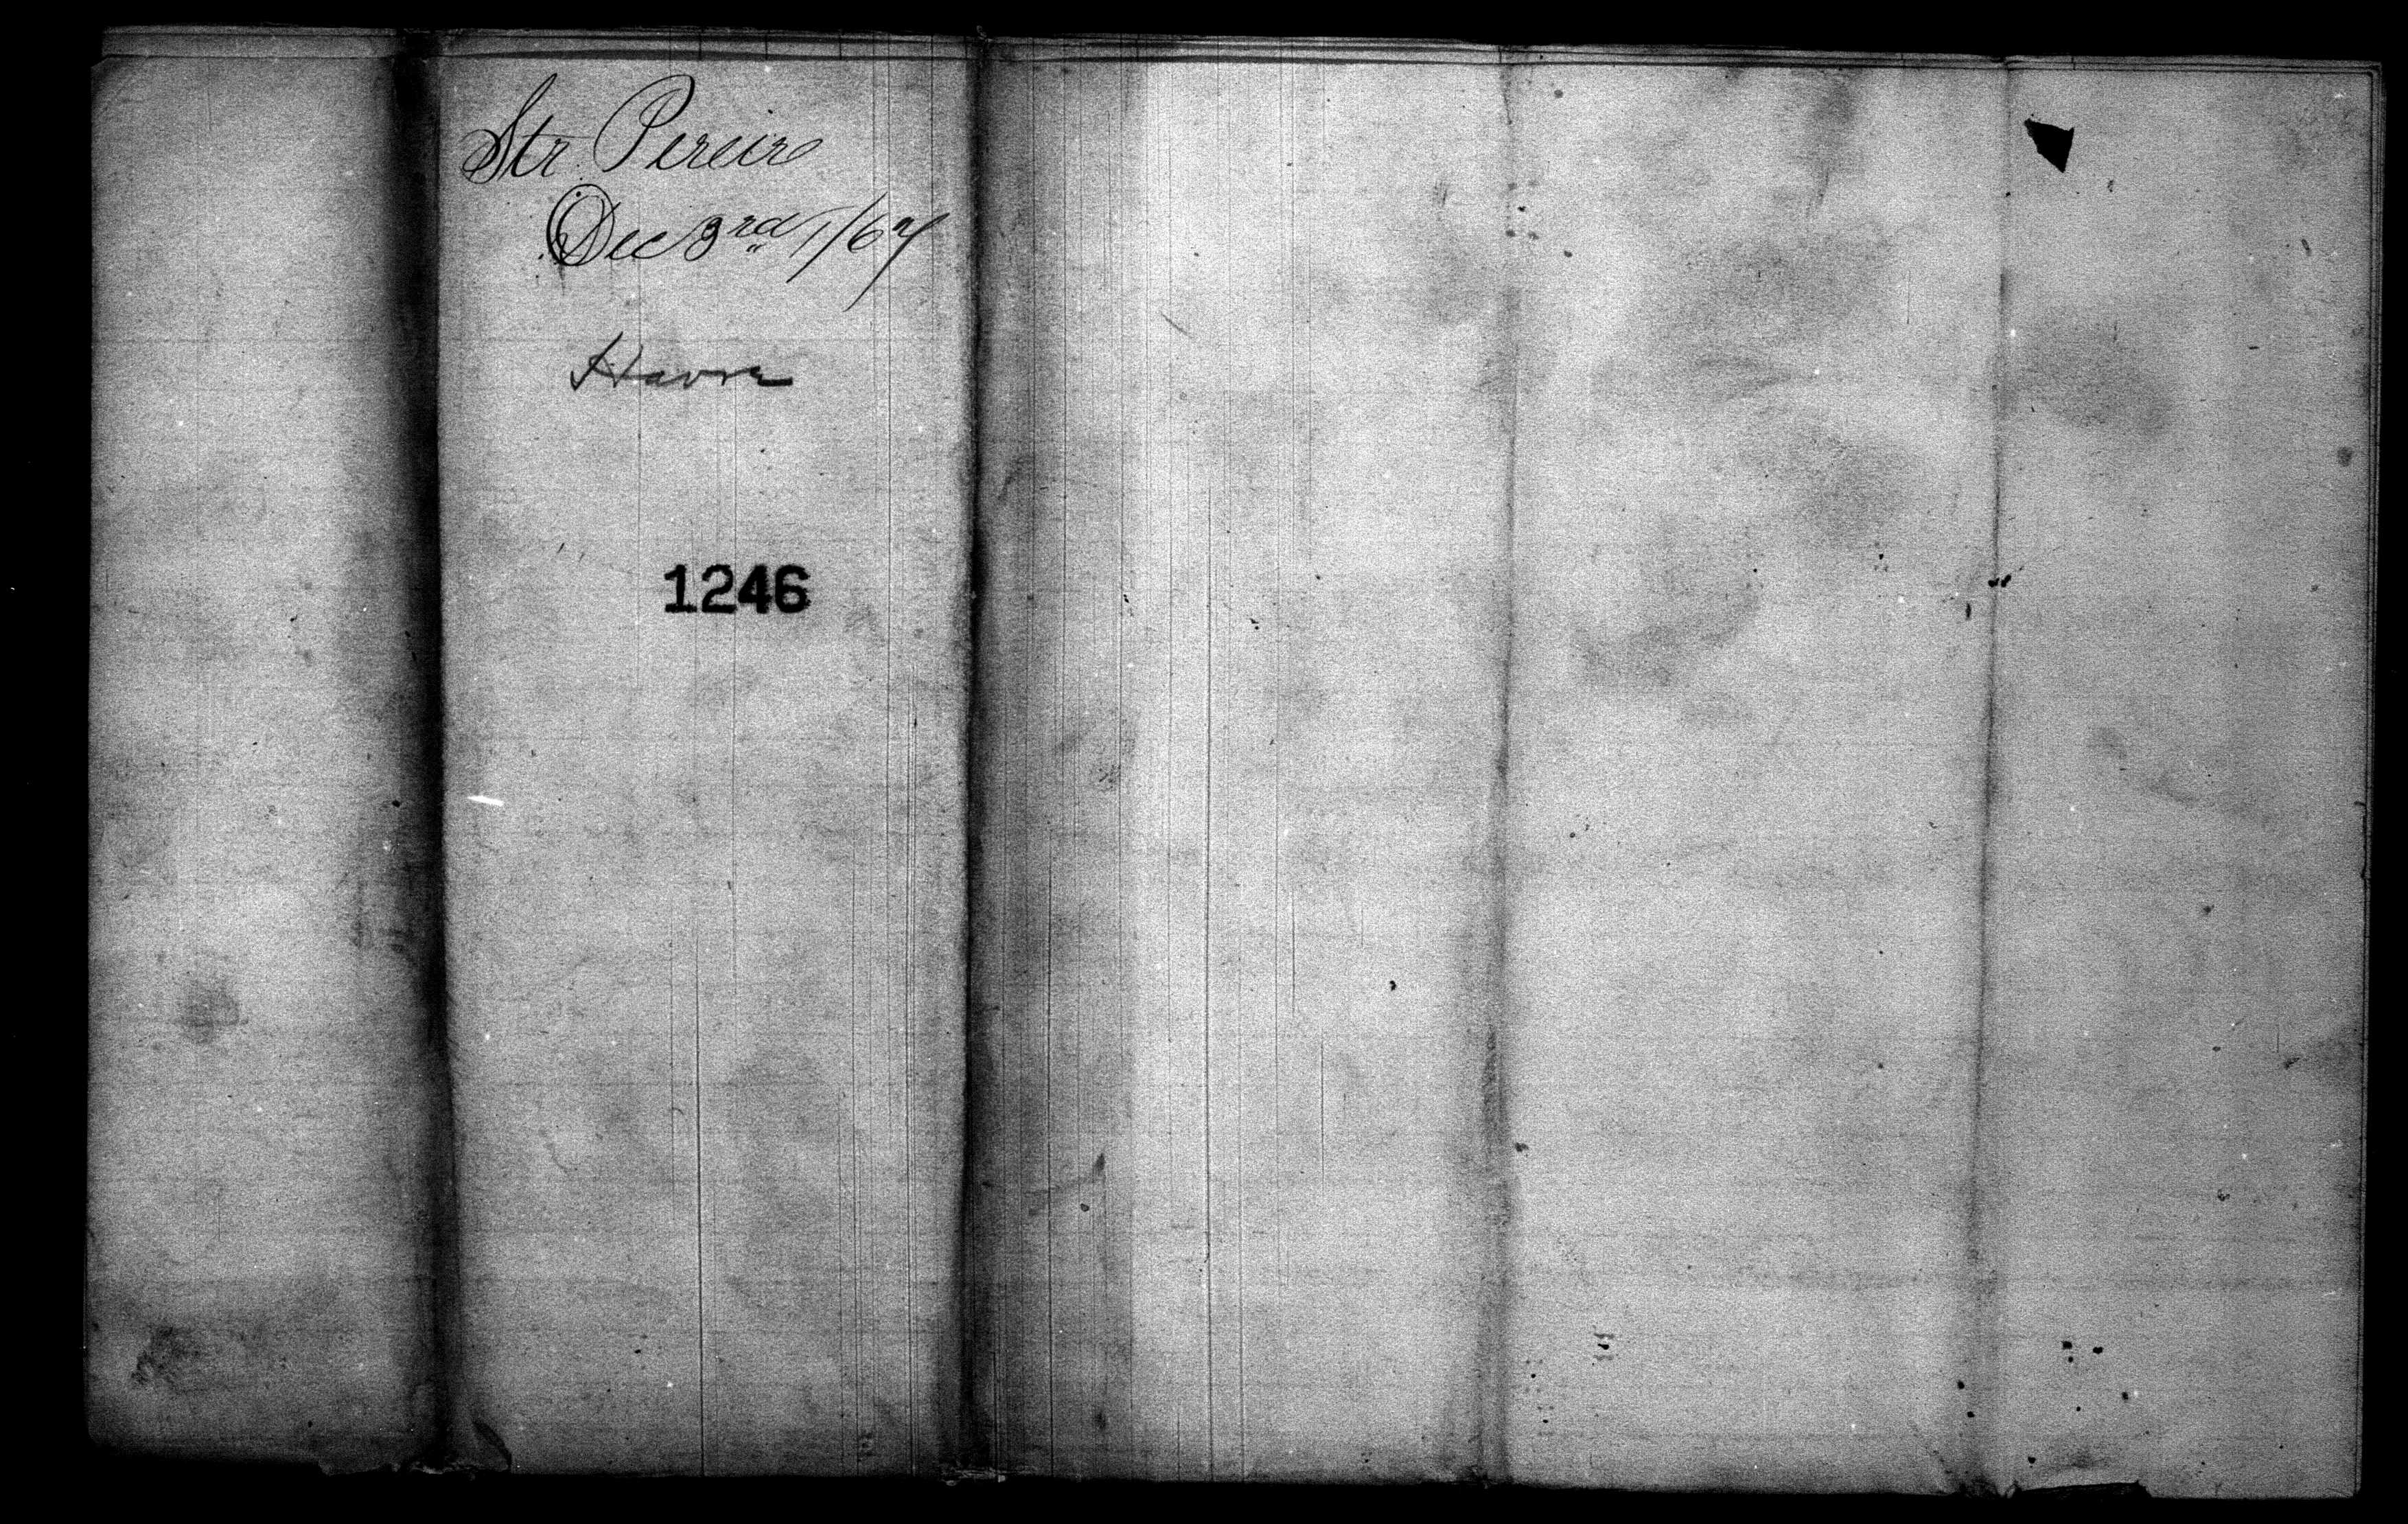 Str. Pereire
Dec 3rd 1/67
Havre
1246